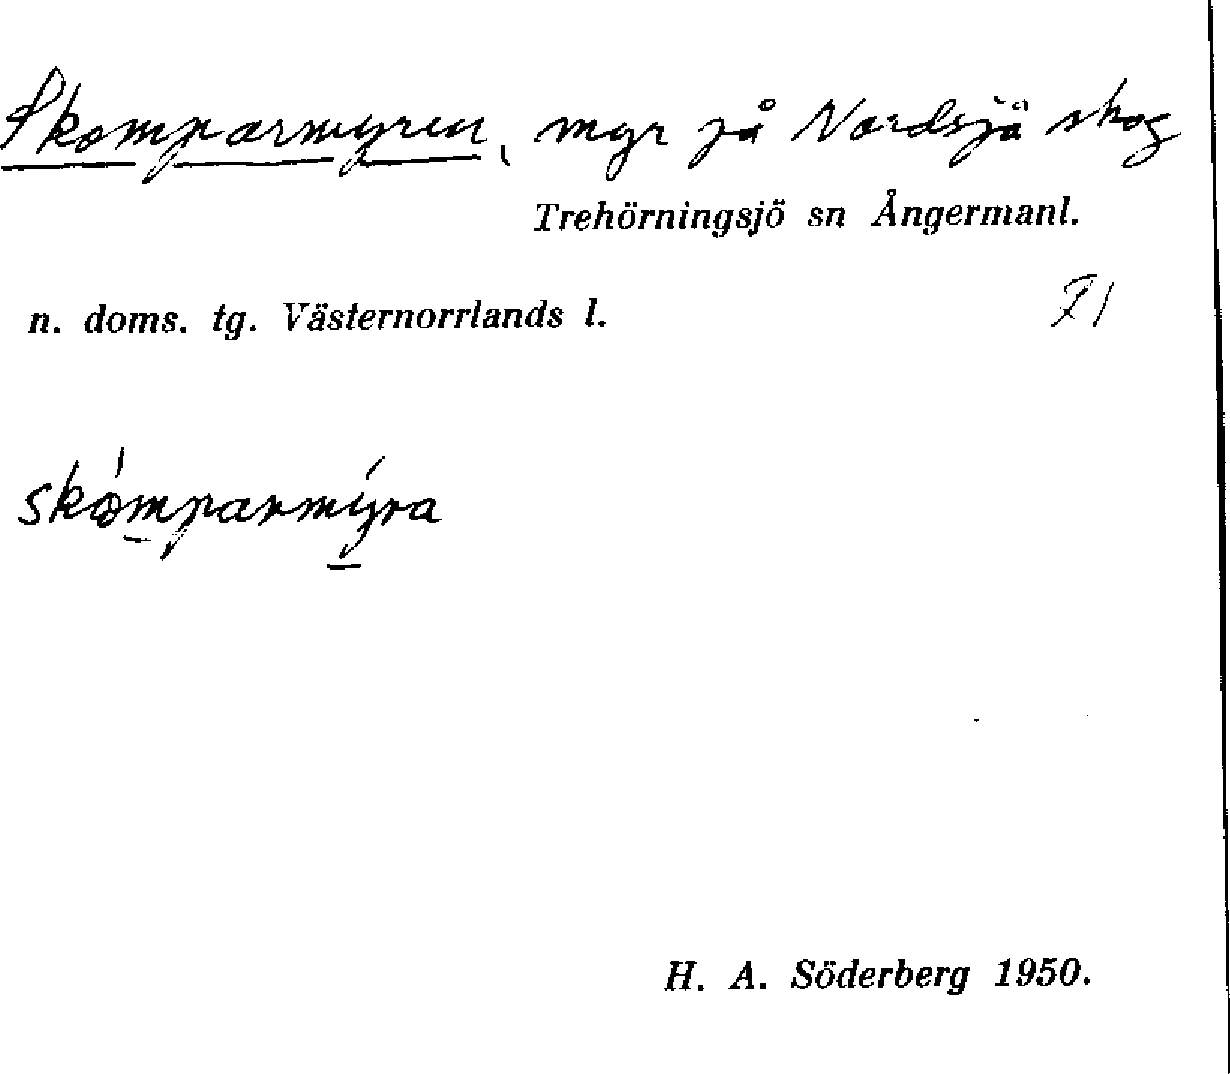 Skomparmyren, myr på Nordsjö skog
Trehörningsjö sn Ångermanl.
n. doms. tg. Västernorrlands l.
skómparmýra
H. A. Söderberg 1950.